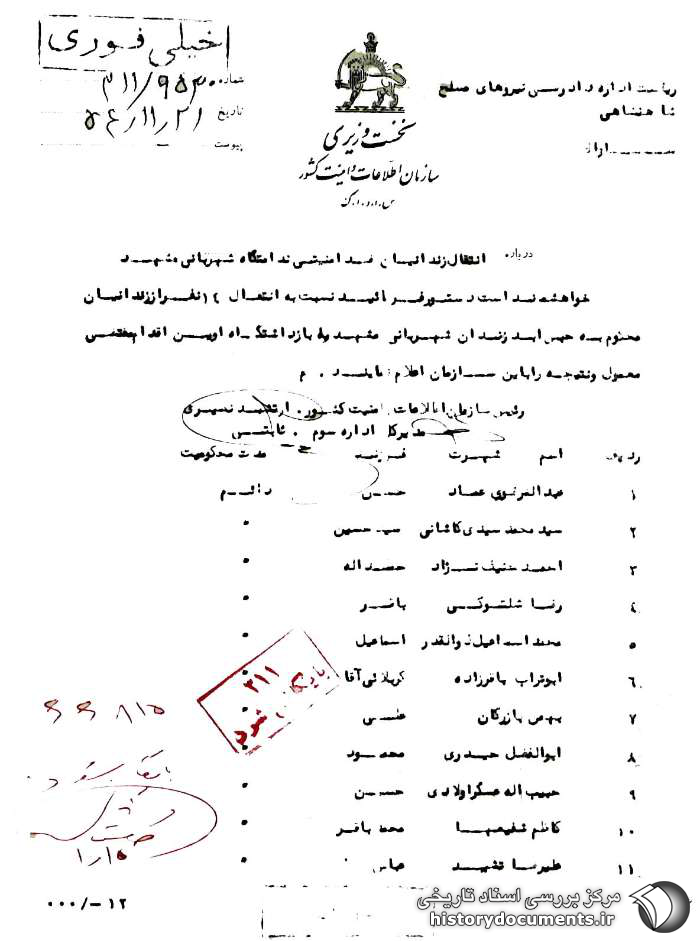 خیلی فوری
شماره ۳۱۱/۹۵۳۰
تاریخ ۵۴/۱۱/۲۱
پیوست
نخست وزیری
سازمان اطلاعات و امنیت کشور
س.ا.و.ا.ک
ریاست اداره دادرسی نیروهای مسلح
شاهنشاهی
درباره انتقال زندانیان ضد امنیتی ندامتگاه شهربانی مشهد
خواهشمند است دستور فرمائید نسبت به انتقال ۱۴ نفر از زندانیان
محکوم به حبس ابد زندان شهربانی مشهد به بازداشتگاه اوین اقدام مقتضی
معمول و نتیجه را باین سازمان اعلام نمایند . م
رئیس سازمان اطلاعات و امنیت کشور . ارتشبد نصیری
مدیر کل اداره سوم . ثابتی
ردیف اسم شهرت فرزند مدت محکومیت
۱ حسن دائم
۲ سید محمد سیدی کاشانی سید حسین "
۳ احمد حنیف نژاد حمداله "
۴ رضا شلتوکی باقر "
۵ محمد اسماعیل ذوالقدر اسماعیل "
۶ ابوتراب باقرزاده کربلائی آقا "
۷ بهمن بازرگان "
۸ ابوالفضل حیدری محمود "
۹ حبیب اله عسگراولادی حسین "
۱۰ کاظم شفیعیها محمد باقر "
۱۱ علیرضا تشید عباس "
۳۱۱
بایگانی شود
۶۶۸۱۵
۱۲-/۰۰۰
مرکز بررسی اسناد تاریخی
historydocuments.ir